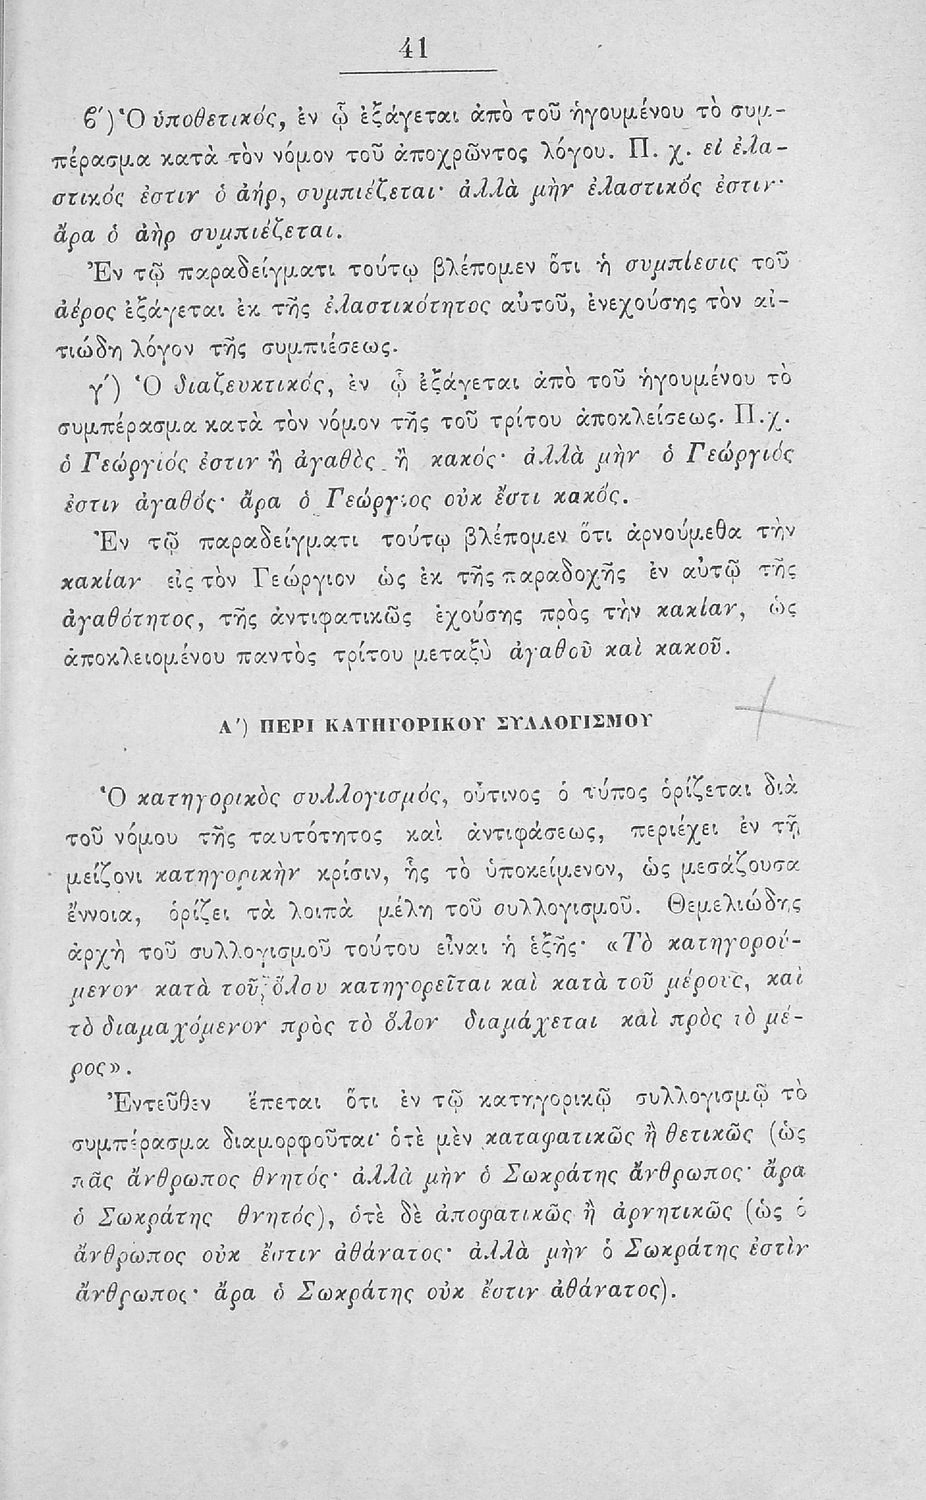 41
ϐ′) Ὁ ὑποθετικός, ἐν ᾧ ἐξάγεται ἀπὸ τοῦ ἡγουμένου τὸ συμ-
πέρασμα κατὰ τὸν νόμον τοῦ ἀποχρῶντος λόγου. Π. χ. εἰ ἐλα-
στικός ἐστιν ὁ ἀήρ, συμπιέζεται· ἀλλὰ μὴν ἐλαστικός ἐστιν·
ἄρα ὁ ἀὴρ συμπιέζεται.
Ἐν τῷ παραδείγματι τούτῳ βλέπομεν ὅτι ἡ συμπίεσις τοῦ
ἀέρος ἐξάγεται ἐκ τῆς ἐλαστικότητος αὐτοῦ, ἐνεχούσης τὸν αἰ-
τιώδη λόγον τῆς συμπιέσεως.
γ′) Ὁ διαζευκτικός, ἐν ᾧ ἐξάγεται ἀπὸ τοῦ ἡγουμένου τὸ
συμπέρασμα κατὰ τὸν νόμον τῆς τοῦ τρίτου ἀποκλείσεως. Π.χ.
ὁ Γεώργιός ἐστιν ἢ ἀγαθὸς ἢ κακός· ἀλλὰ μὴν ὁ Γεώργιός
ἐστιν ἀγαθός· ἄρα ὁ Γεώργιος οὐκ ἔστι κακός.
Ἐν τῷ παραδείγματι τούτῳ βλέπομεν ὅτι ἀρνούμεθα τὴν
κακίαν εἰς τὸν Γεώργιον ὡς ἐκ τῆς παραδοχῆς ἐν αὐτῷ τῆς
ἀγαθότητος, τῆς ἀντιφατικῶς ἐχούσης πρὸς τὴν κακίαν, ὡς
ἀποκλειομένου παντὸς τρίτου μεταξὺ ἀγαθοῦ καὶ κακοῦ.
Α′) ΠΕΡΙ ΚΑΤΗΓΟΡΙΚΟΥ ΣΥΛΛΟΓΙΣΜΟΥ
Ὁ κατηγορικὸς συλλογισμός, οὗτινος ὁ τύπος ὁρίζεται διὰ
τοῦ νόμου τῆς ταυτότητος καὶ ἀντιφάσεως, περιέχει ἐν τῇ
μείζονι κατηγορικὴν κρίσιν, ἧς τὸ ὑποκείμενον, ὡς μεσάζουσα
ἔννοια, ὁρίζει τὰ λοιπὰ μέλη τοῦ συλλογισμοῦ. Θεμελιώδης
ἀρχὴ τοῦ συλλογισμοῦ τούτου εἶναι ἡ ἑξῆς· «Τὸ κατηγορού-
μενον κατὰ τοῦ ὅλου κατηγορεῖται καὶ κατὰ τοῦ μέρους, καὶ
τὸ διαμαχόμενον πρὸς τὸ ὅλον διαμάχεται καὶ πρὸς τὸ μέ-
ρος».
Ἐντεῦθεν ἕπεται ὅτι ἐν τῷ κατηγορικῷ συλλογισμῷ τὸ
συμπέρασμα διαμορφοῦται· ὁτὲ μὲν καταφατικῶς ἢ θετικῶς (ὡς
πᾶς ἄνθρωπος θνητός· ἀλλὰ μὴν ὁ Σωκράτης ἄνθρωπος· ἄρα
ὁ Σωκράτης θνητός), ὁτὲ δὲ ἀποφατικῶς ἢ ἀρνητικῶς (ὡς ὁ
ἄνθρωπος οὐκ ἔστιν ἀθάνατος· ἀλλὰ μὴν ὁ Σωκράτης ἐστὶν
ἄνθρωπος· ἄρα ὁ Σωκράτης οὐκ ἔστιν ἀθάνατος).